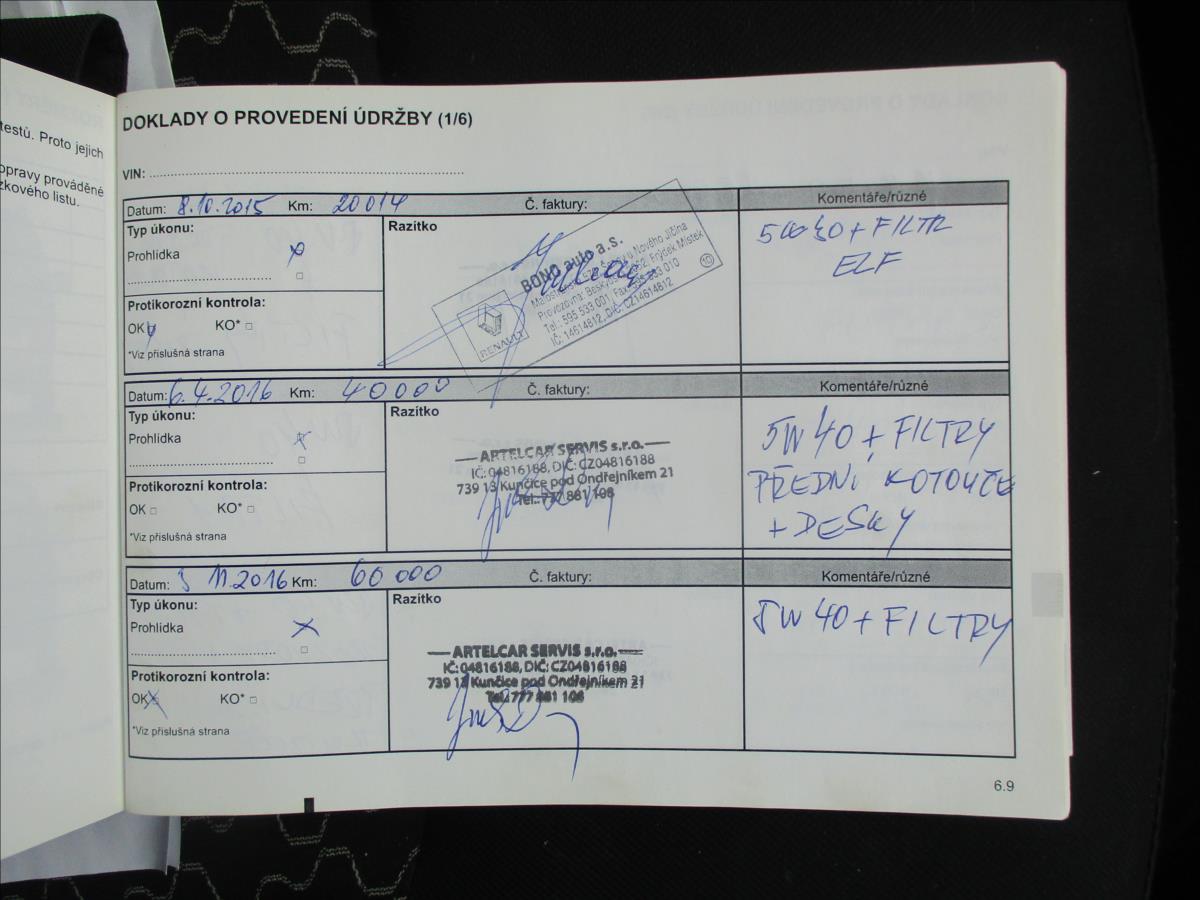 testů. Proto jejich
opravy prováděné
zkového listu.
DOKLADY O PROVEDENÍ ÚDRŽBY (1/6)
VIN:
Datum: 8.10.2015 Km: 20014 Č. faktury: Komentáře/různé
Typ úkonu: Razítko
Prohlídka
Protikorozní kontrola:
OK KO*
*Viz příslušná strana
BONO auto a.s.
Tel.: 595 533 001, Fax: 595 533 010
IČ: 14614812, DIČ: CZ14614812
RENAULT
10
+ FILTR
ELF
Datum: 6.4.2016 Km: 40000 Č. faktury: Komentáře/různé
Typ úkonu: Razítko
Prohlídka
Protikorozní kontrola:
OK KO*
*Viz příslušná strana
ARTELCAR SERVIS s.r.o.
IČ: 04816188, DIČ: CZ04816188
739 13 Kunčice pod Ondřejníkem 21
Tel.: 777 881 108
5W40 + FILTRY
PŘEDNÍ KOTOUČE
+ DESKY
Datum: 11.2016 Km: 60 000 Č. faktury: Komentáře/různé
Typ úkonu: Razítko
Prohlídka
Protikorozní kontrola:
OK KO*
*Viz příslušná strana
ARTELCAR SERVIS s.r.o.
IČ: 04816188, DIČ: CZ04816188
739 13 Kunčice pod Ondřejníkem 21
Tel.: 777 881 108
5W40 + FILTRY
6.9